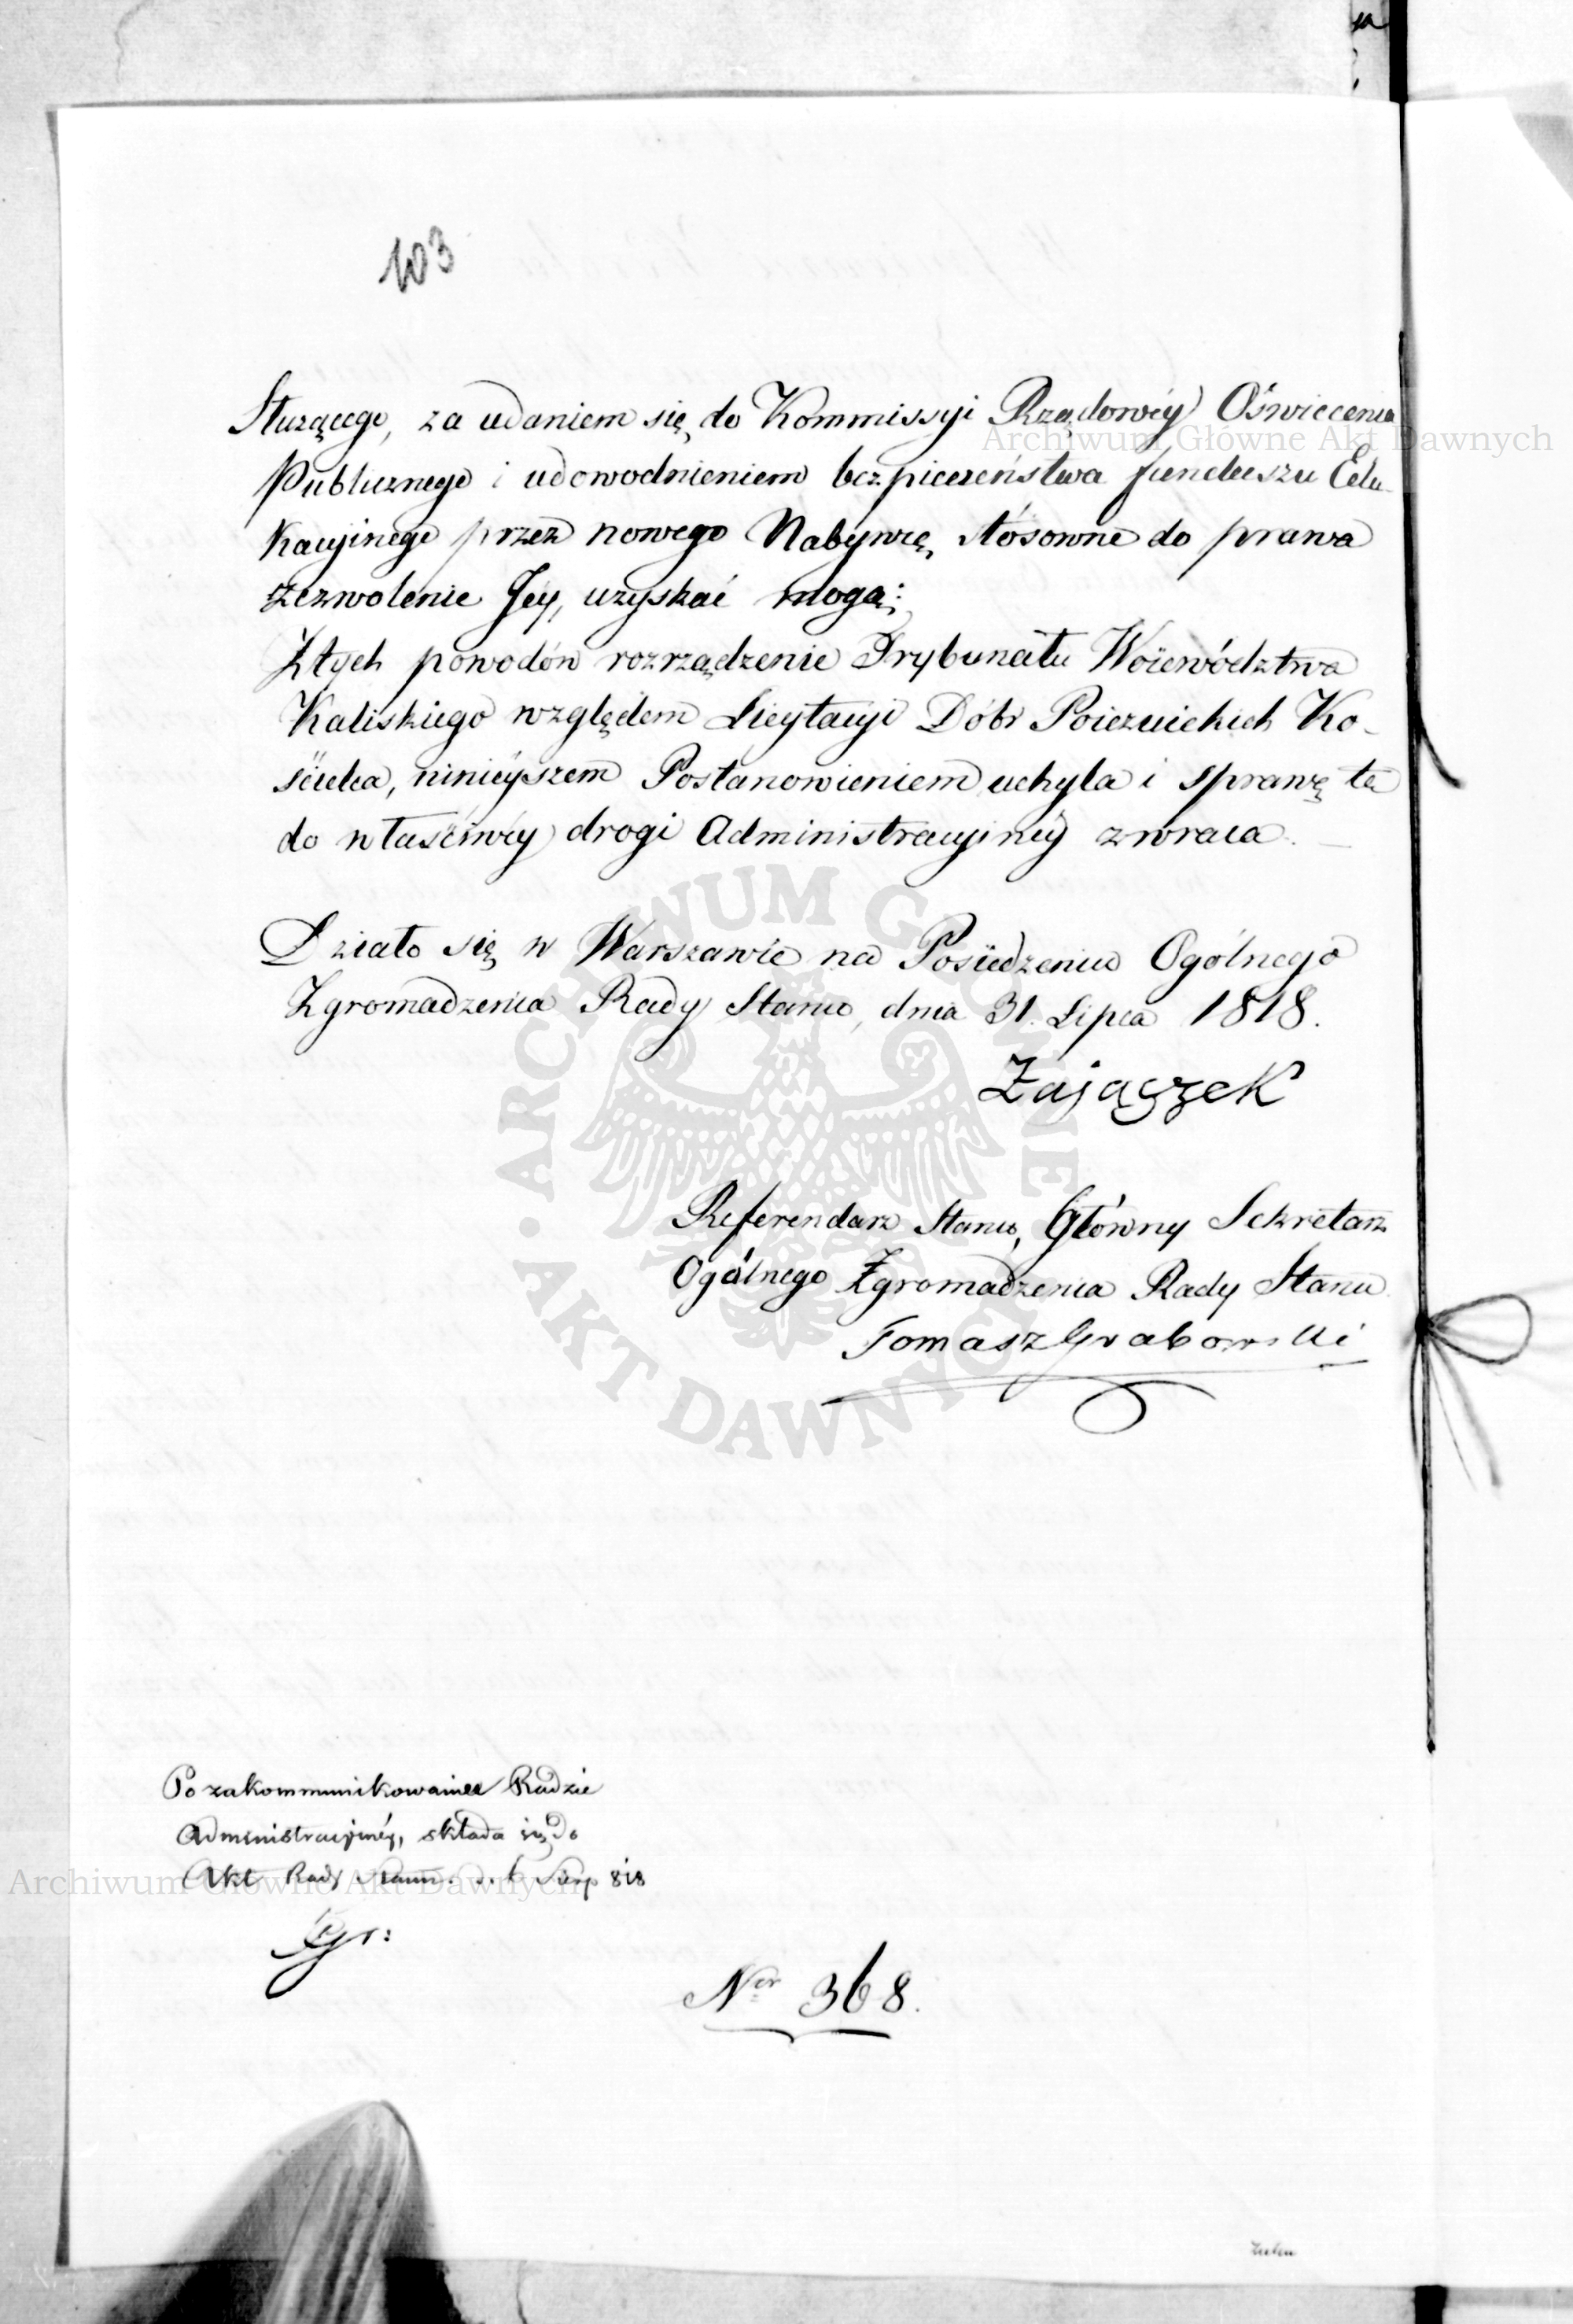 103
Służącego, za udaniem się do Kommissyi Rządowéy Oświecenia
Publicznego i udowodnieniem bezpieczeństwa funduszu Edu-
kacyinego przez nowego Nabywcę, stósownie do prawa
zezwolenie Jey, uzyskać mogą;
Z tych powodów rozrządzenie Trybunału Woiewództwa
Kaliskiego względem Licytacyi Dóbr Poiezuickich Ko-
ścielca, ninieyszem Postanowieniem uchyla i sprawę tę
do właściwéy drogi Administracyinéy zwraca.
Działo się w Warszawie na Posiedzeniu Ogólnego
Zgromadzenia Rady Stanu, dnia 31. Lipca 1818.
Zajączek
Referendarz Stanu, Główny Sekretarz
Ogólnego Zgromadzenia Rady Stanu
Tomasz Grabowski
Po zakommunikowaniu Radzie
Administracyinéy, składa się do
Akt Rady Stanu. d. 6 Sierp 818
Ner 368.
Archiwum Główne Akt Dawnych
Archiwum Główne Akt Dawnych
ARCHIWUM GŁÓWNE
AKT DAWNYCH